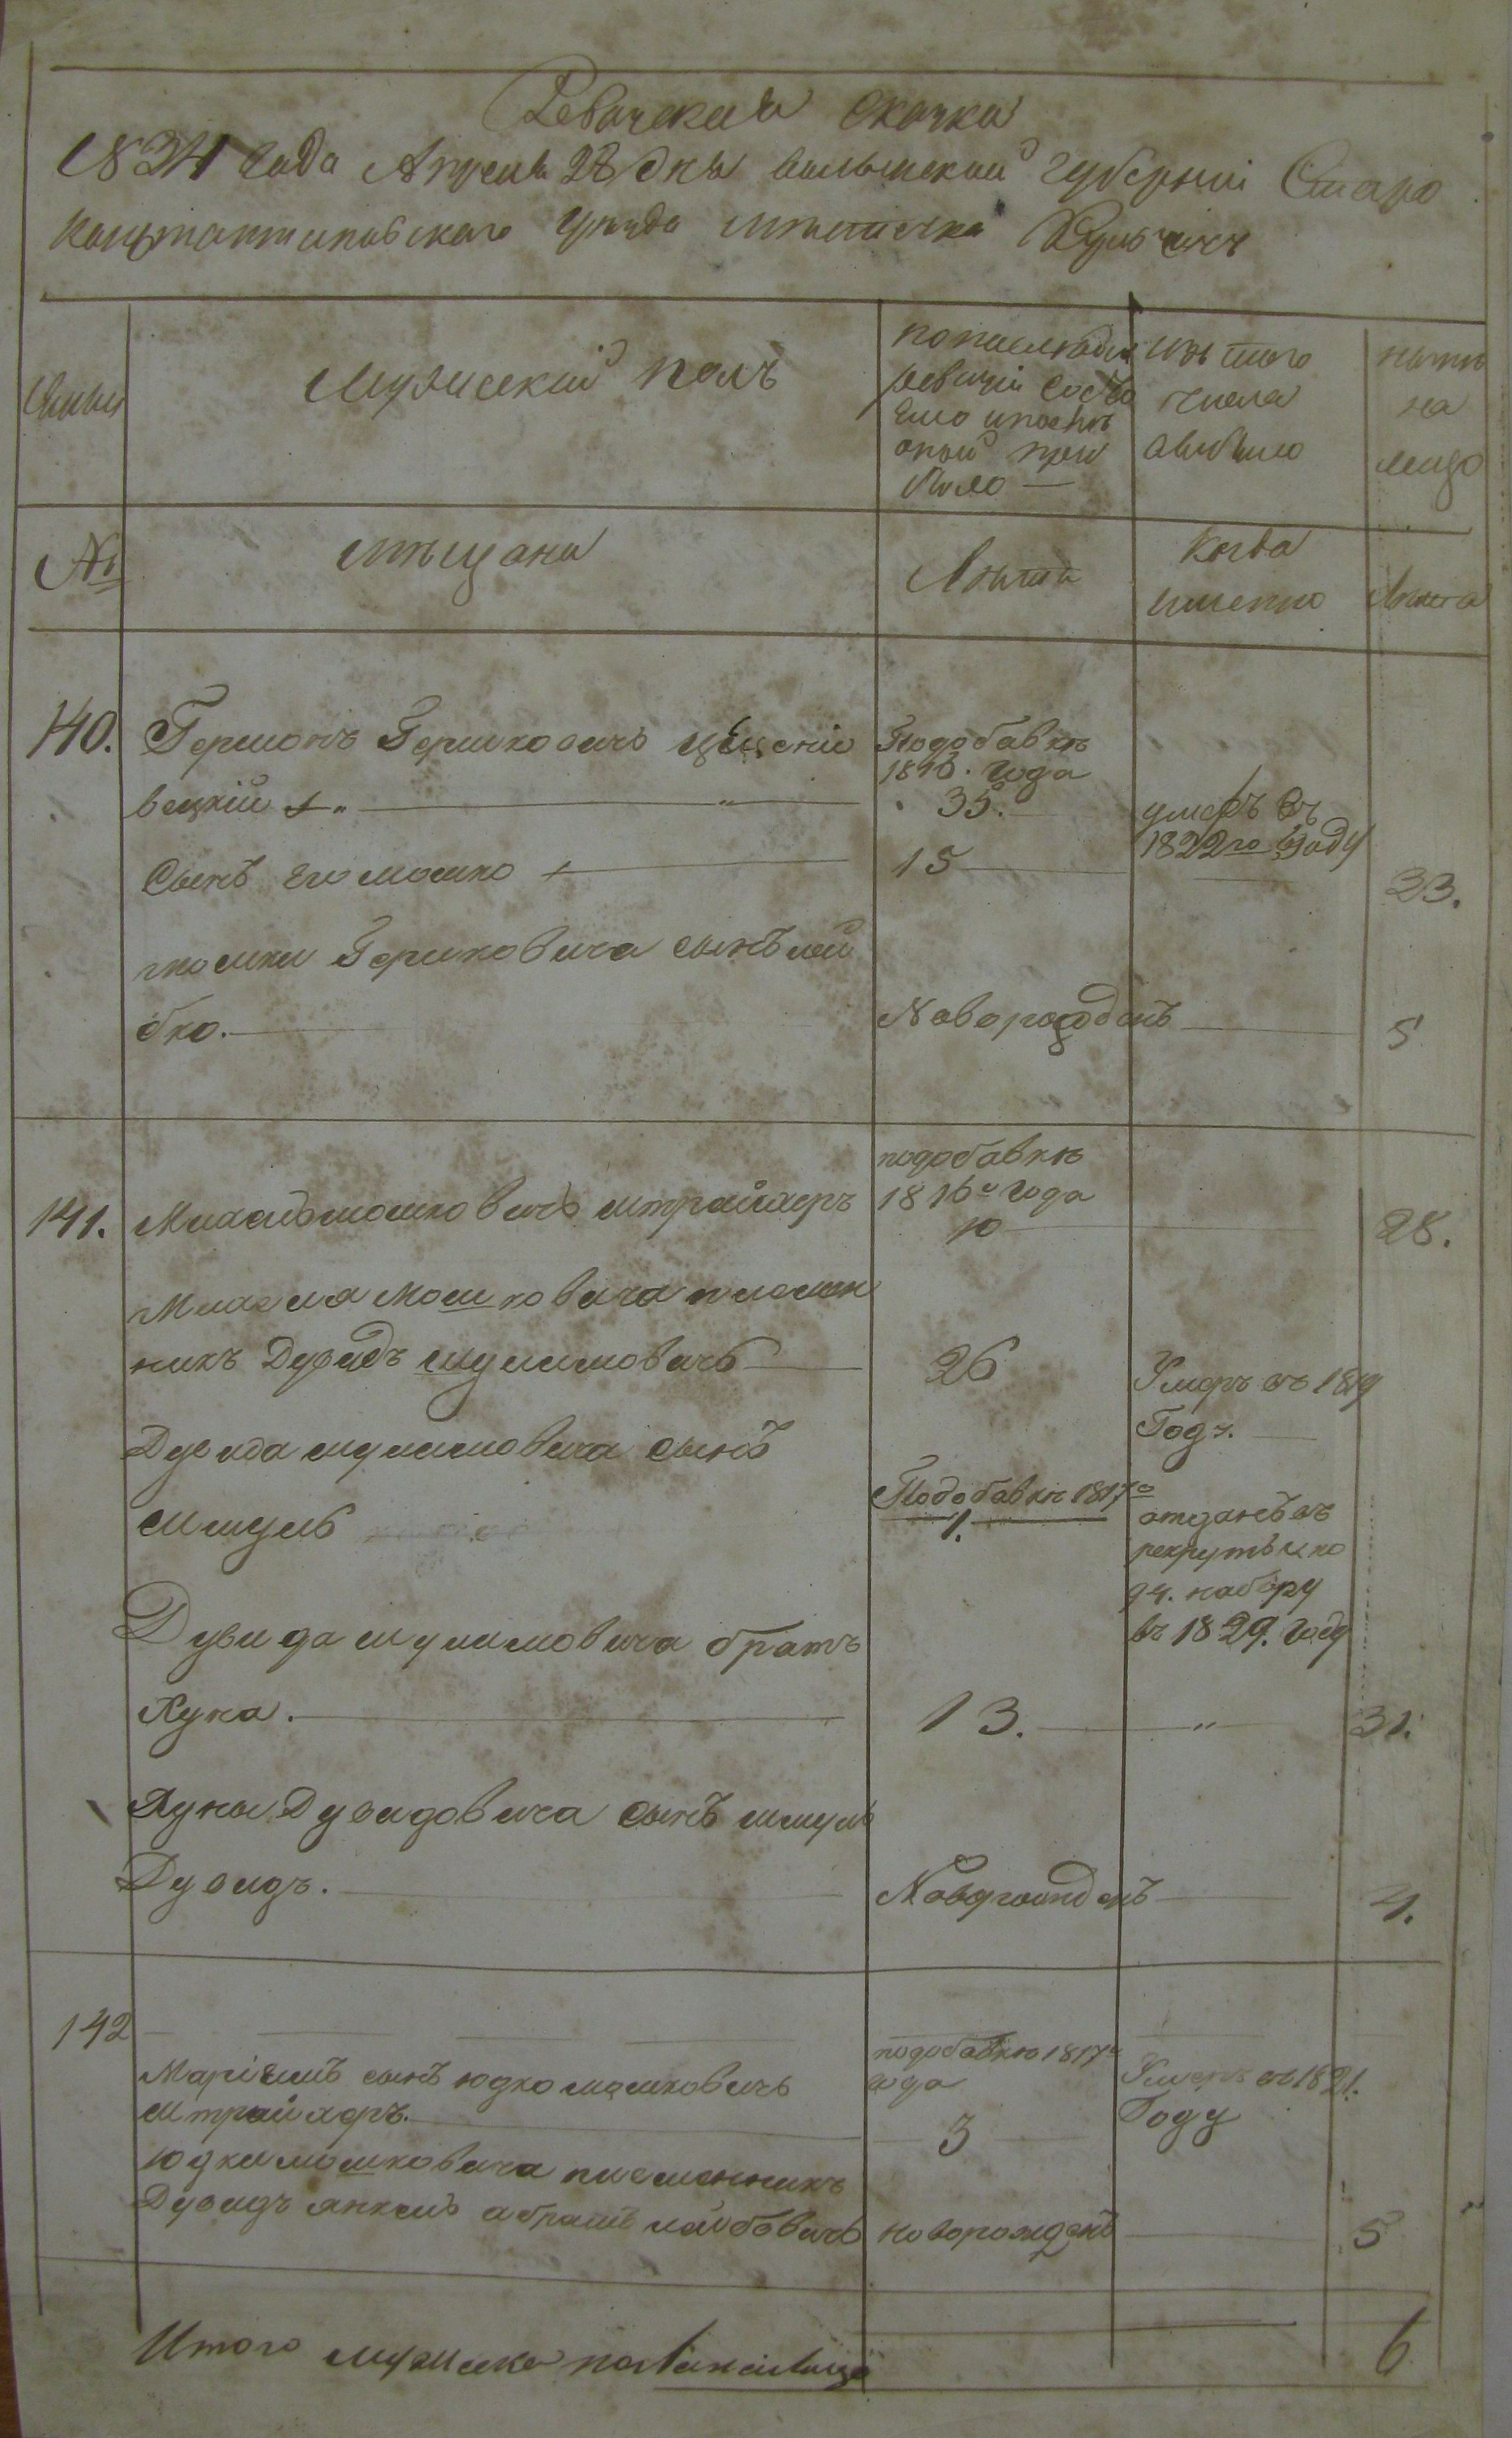 Ревизская Скаска
1834 Года Апреля 28 дня Волынской Губернiи Старо
Константиновскаго Уѣзда мѣстечка Кульчинъ
Мужеской полъ
По последней
ревизiи состо
яло и после
оной при
было —
Изъ того
числа
выбыло
Нынѣ
на
лицо
№
Мѣщане
Лѣта
Когда
именно
Лѣта
140.
Гершонъ Гершковичъ
вецкiй
Подобавкѣ
1816. Года
35.
умеръ въ
1822го Году
Сынъ его Мошко
15
33.
Мошки Гершковича сынъ Лей
бко.
Новорожденъ
5
141.
Михель Мошковичъ Штрайхеръ
подобавкѣ
1816го Года
10
28.
Михеля Мошковича племен
никъ Дувидъ Шулимовичъ
26
Умеръ въ 1819
Году.
Дувида Шулимовича сынъ
Шмуль
Подобавкѣ 1817го
1.
отданъ въ
рекруты по
94. набору
въ 1829. Году
Дувида Шулимовича братъ
Хуна.
13.
"
31.
Хуны Дувидовича сынъ Шмуль
Дувидъ.
Новорожденъ
4.
142
Марiемъ сынъ Юдко Мошковичъ
Штрайхеръ.
подобавкѣ 1817го
года
3
Умеръ въ 1821.
Году
Юдки Мошковича племенникъ
Дувидъ Янкель Абрамъ Лейбовичъ
новорожденъ
5
Итого мужеска пола налицо
6